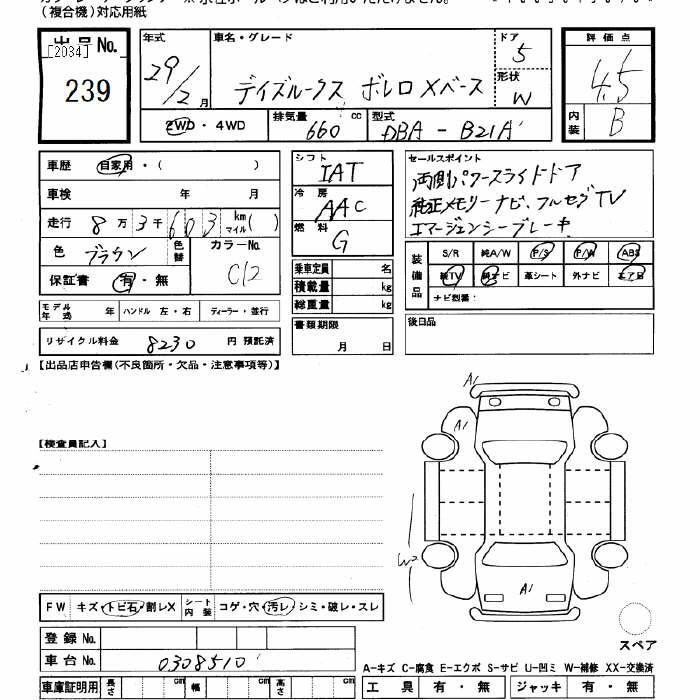 (複合機)対応用紙
出品No.
[2034]
239
年式
29/2月
車名・グレード
デイズルークス ボレロ Xベース
ドア
5
形状
W
2WD・4WD
排気量
660 cc
型式
DBA-B21A
評価点
4.5
内装
B
車歴 自家用・( )
車検 年 月
走行 8万3千603 km マイル( )
色 ブラウン 色替
カラーNo.
C12
保証書 有・無
モデル年式 年 ハンドル 左・右 ディーラー・並行
リサイクル料金 8230 円 預託済
シフト
IAT
冷房
AAC
燃料
G
乗車定員 名
積載量 kg
総重量 kg
書類期限
月 日
セールスポイント
両側パワースライドドア
純正メモリーナビ、フルセグTV
エマージェンシーブレーキ
装備品
S/R 純A/W P/S P/W ABS
純TV 純ナビ 革シート 外ナビ エアB
ナビ型番:
後日品
【出品店申告欄(不良箇所・欠品・注意事項等)】
【検査員記入】
A1
A1
W2
A1
FW キズ・トビ石・割レX シート内装 コゲ・穴・汚レ・シミ・破レ・スレ
登録No.
車台No. 0308510
車庫証明用 長さ cm 幅 cm 高さ cm
スペア
A-キズ C-腐食 E-エクボ S-サビ U-凹ミ W-補修 XX-交換済
工具 有・無 ジャッキ 有・無